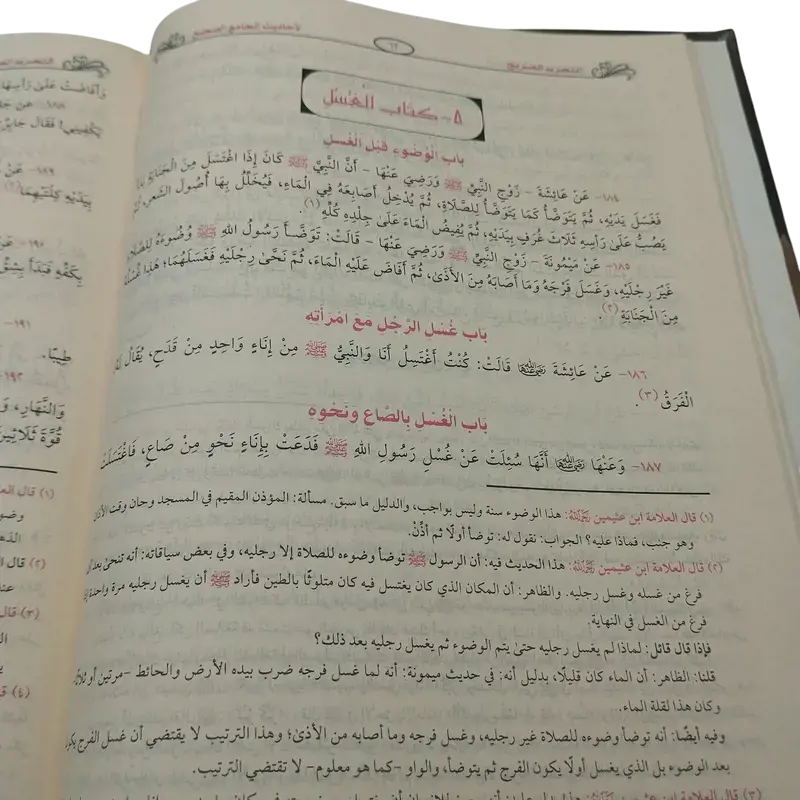 التجريد الصريح
٦٢
لأحاديث الجامع الصحيح
٥- كتاب الغُسل
باب الوُضوء قبل الغسل
١٨٤- عَنْ عَائِشَةَ – زَوْجِ النَّبِيِّ ﷺ وَرَضِيَ عَنْهَا – أَنَّ النَّبِيَّ ﷺ كَانَ إِذَا اغْتَسَلَ مِنَ الْجَنَابَةِ بَدَأَ
فَغَسَلَ يَدَيْهِ، ثُمَّ يَتَوَضَّأُ كَمَا يَتَوَضَّأُ لِلصَّلَاةِ، ثُمَّ يُدْخِلُ أَصَابِعَهُ فِي الْمَاءِ، فَيُخَلِّلُ بِهَا أُصُولَ الشَّعَرِ، ثُمَّ
يَصُبُّ عَلَىٰ رَأْسِهِ ثَلَاثَ غُرَفٍ بِيَدَيْهِ، ثُمَّ يُفِيضُ الْمَاءَ عَلَىٰ جِلْدِهِ كُلِّهِ(١).
١٨٥- عَنْ مَيْمُونَةَ – زَوْجِ النَّبِيِّ ﷺ وَرَضِيَ عَنْهَا – قَالَتْ: تَوَضَّأَ رَسُولُ اللهِ ﷺ وُضُوءَهُ لِلصَّلَاةِ
غَيْرَ رِجْلَيْهِ، وَغَسَلَ فَرْجَهُ وَمَا أَصَابَهُ مِنَ الْأَذَىٰ، ثُمَّ أَفَاضَ عَلَيْهِ الْمَاءَ، ثُمَّ نَحَّىٰ رِجْلَيْهِ فَغَسَلَهُمَا؛ هَذَا غُسْلُهُ
مِنَ الْجَنَابَةِ(٢).
باب غُسل الرَّجُل مع امْرأته
١٨٦- عَنْ عَائِشَةَ ﵂ قَالَتْ: كُنْتُ أَغْتَسِلُ أَنَا وَالنَّبِيُّ ﷺ مِنْ إِنَاءٍ وَاحِدٍ مِنْ قَدَحٍ، يُقَالُ لَهُ
الْفَرَقُ(٣).
باب الْغُسل بِالصَّاع ونَحْوه
١٨٧- وَعَنْهَا ﵂ أَنَّهَا سُئِلَتْ عَنْ غُسْلِ رَسُولِ اللهِ ﷺ فَدَعَتْ بِإِنَاءٍ نَحْوٍ مِنْ صَاعٍ، فَاغْتَسَلَتْ
(١) قال العلامة ابن عثيمين ﵀: هذا الوضوء سنة وليس بواجب، والدليل ما سبق. مسألة: المؤذن المقيم في المسجد وحان وقت الأذان
وهو جنب، فماذا عليه؟ الجواب: نقول له: توضأ أولًا ثم أذِّنْ.
(٢) قال العلامة ابن عثيمين ﵀: هذا الحديث فيه: أن الرسول ﷺ توضأ وضوءه للصلاة إلا رجليه، وفي بعض سياقاته: أنه تنحىٰ بعد أن
فرغ من غسله وغسل رجليه. والظاهر: أن المكان الذي كان يغتسل فيه كان متلوثًا بالطين فأراد ﷺ أن يغسل رجليه مرة واحدة إذا
فرغ من الغسل في النهاية.
فإذا قال قائل: لماذا لم يغسل رجليه حتىٰ يتم الوضوء ثم يغسل رجليه بعد ذلك؟
قلنا: الظاهر: أن الماء كان قليلًا، بدليل أنه: في حديث ميمونة: أنه لما غسل فرجه ضرب بيده الأرض والحائط –مرتين أو ثلاثًا
وكان هذا لقلة الماء..
وفيه أيضًا: أنه توضأ وضوءه للصلاة غير رجليه، وغسل فرجه وما أصابه من الأذىٰ؛ وهذا الترتيب لا يقتضي أن غسل الفرج يكون
بعد الوضوء بل الذي يغسل أولًا يكون الفرج ثم يتوضأ، والواو –كما هو معلوم– لا تقتضي الترتيب.
(٣) قال العلامة ابن عثيمين ﵀:
وَأَفَاضَتْ عَلَىٰ رَأْسِهَا
١٨٨- عن جَا
يَكْفِينِي! فَقَالَ جَابِرٌ
١٨٩- عَنْ
بِيَدَيْهِ كِلْتَيْهِمَا
١٩٠- عَنْ
بِكَفِّهِ فَبَدَأَ بِشِقِّ
١٩١-
طِيبًا.
١٩٢-
وَالنَّهَارِ، وَ
قُوَّةَ ثَلَاثِينَ
(١) قال العلا
وضو
الذه
(٢) قال ال
عنا
(٣) قال
(٤) ق